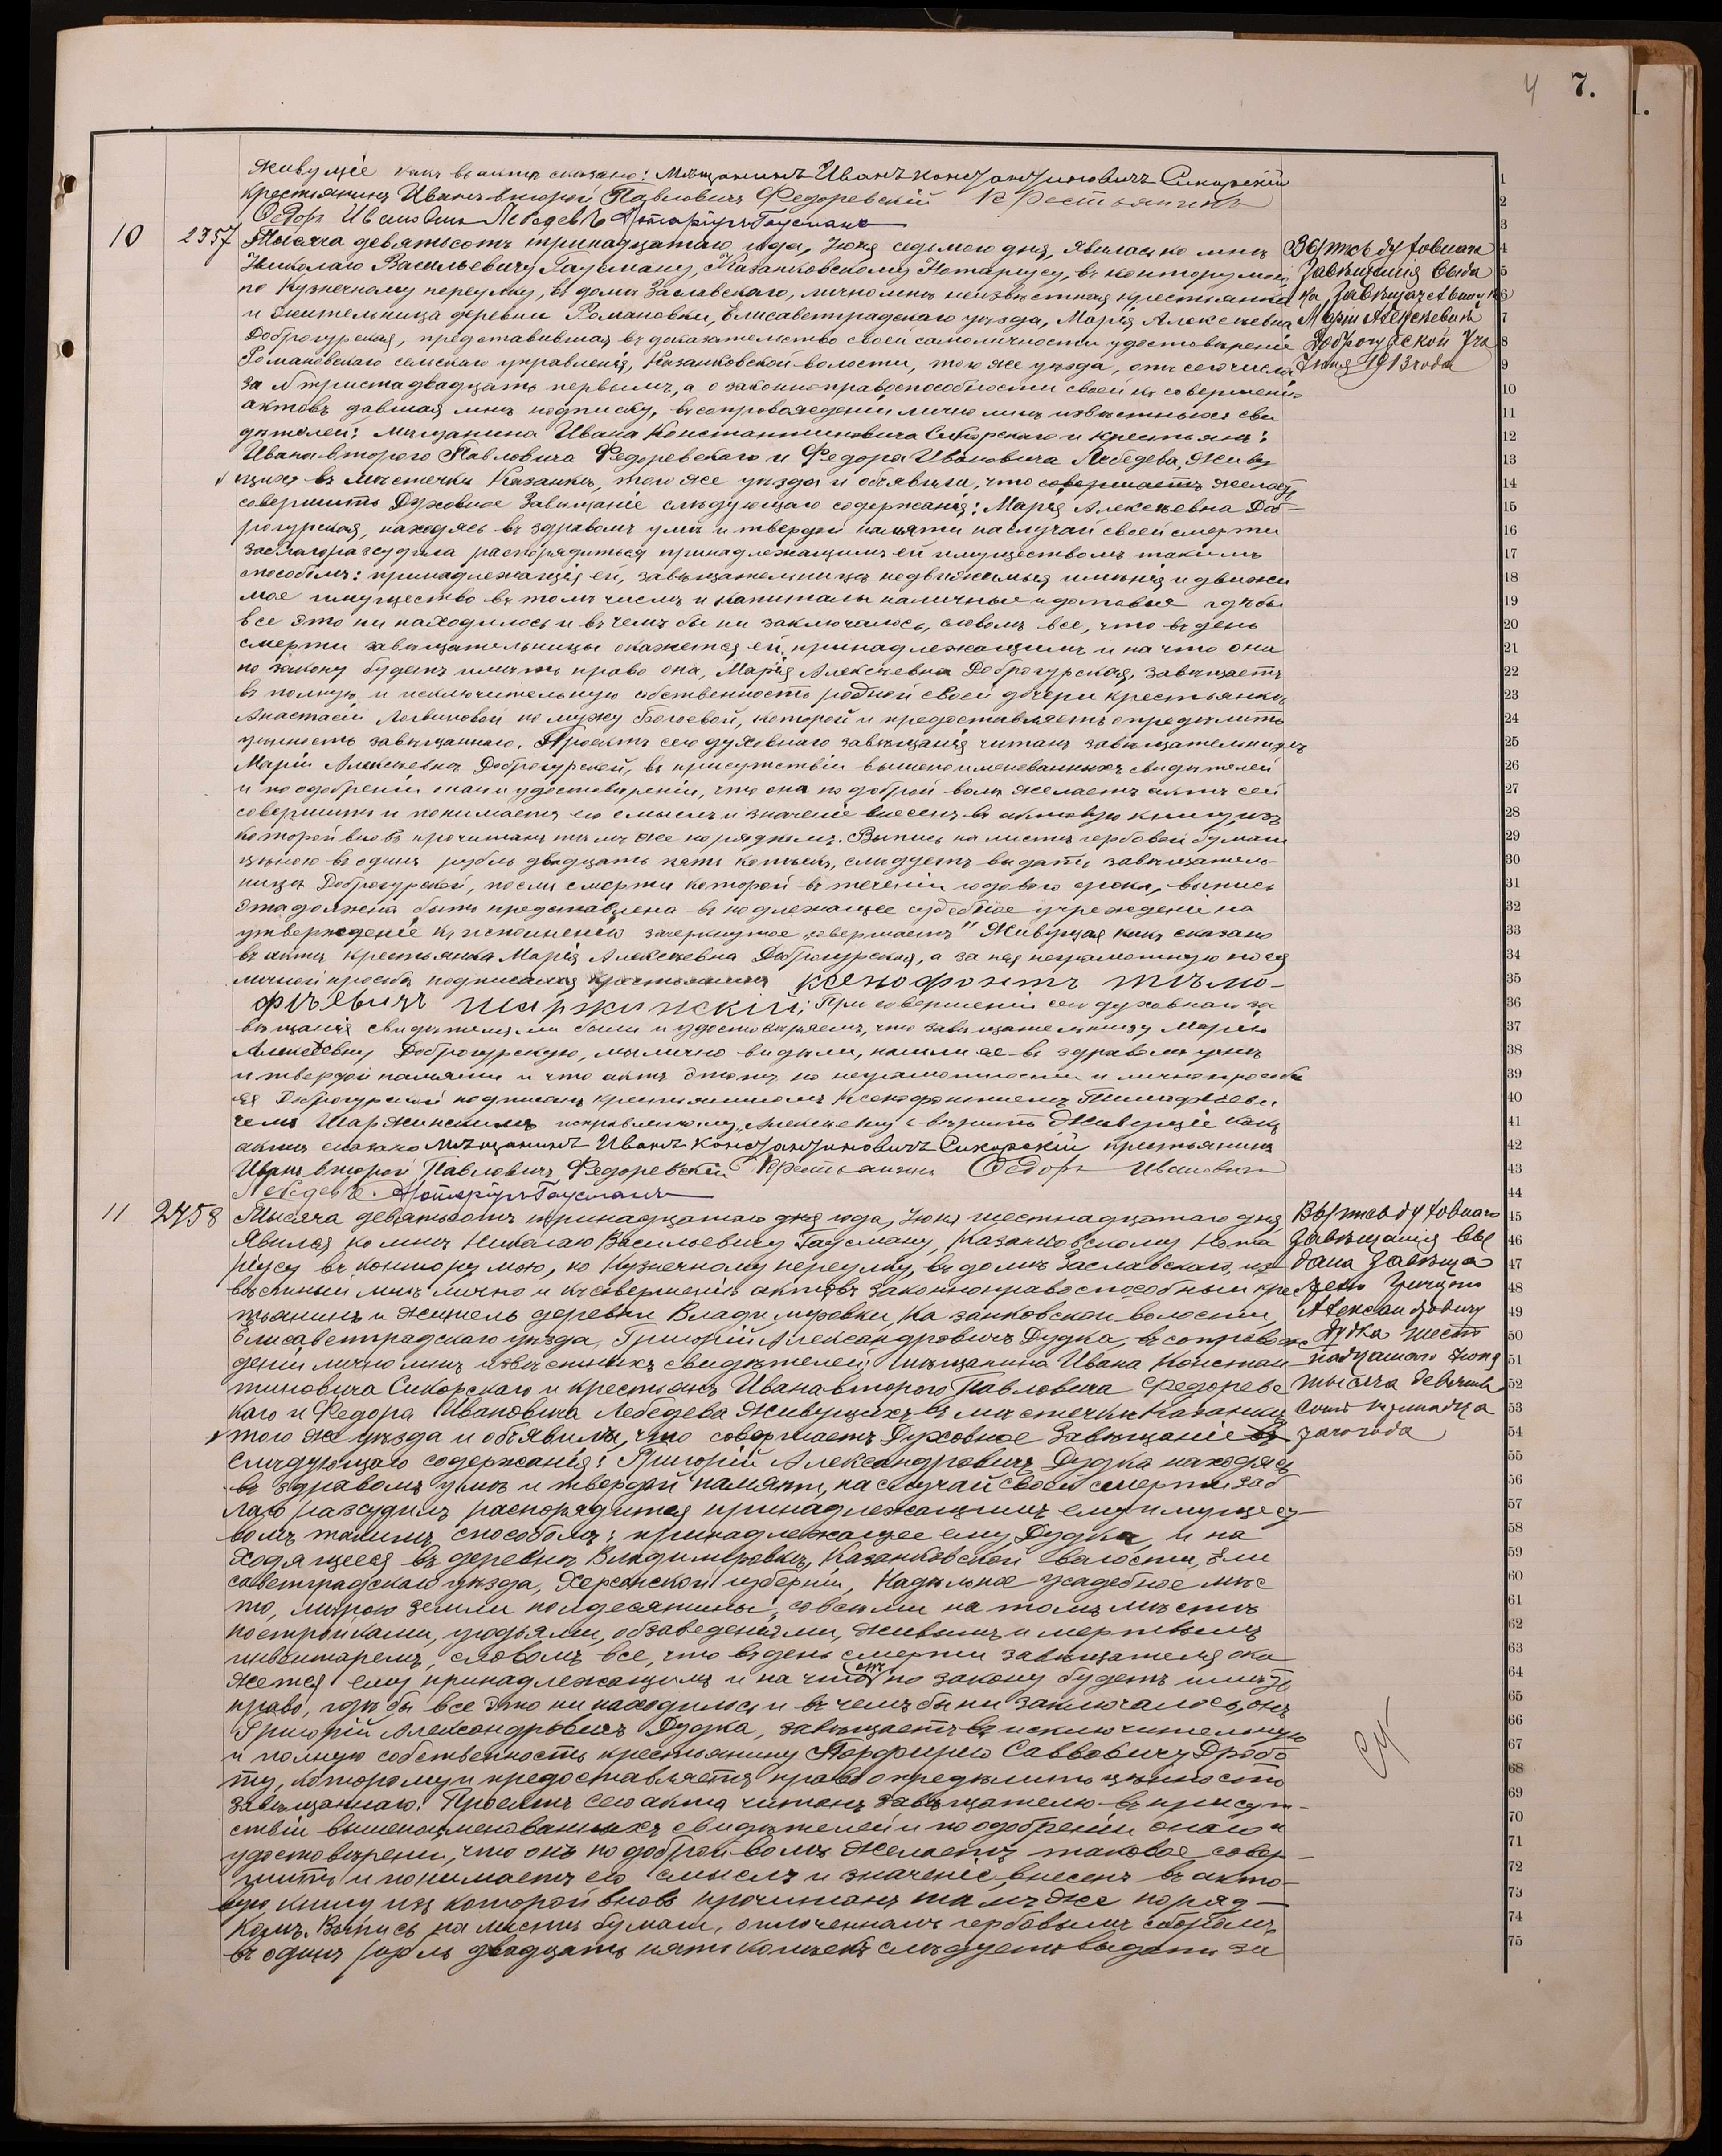 4 7.
Живущіе какъ въ актѣ сказано: Мѣщанинъ Иванъ Константиновичъ Сикорскій
Крестьянинъ Иванъ второй Павловичъ Федоревскій Крестьянинъ
Ѳедоръ Ивановичъ Лебедевъ Нотаріусъ Гаусманъ
10 2357 Тысяча девятьсотъ тринадцатаго года, Іюня седьмого дня, явилась ко мнѣ
Николаю Васильевичу Гаусману, Казанковскому Нотаріусу, въ контору мою,
по Кузнечному переулку, въ домѣ Заславскаго, лично мнѣ неизвѣстная крестьянка
и жительница деревни Романовки, Елисаветградскаго уѣзда, Марія Алексѣевна
Доброгурская, представившая въ доказательство своей самоличности удостовѣреніе
Романовскаго сельскаго управленія, Казанковской волости, того же уѣзда, отъ сего числа
за № триста двадцать первымъ, а о законной правоспособности своей къ совершенію
актовъ давшая мнѣ подписку, въ сопровожденіи лично мнѣ извѣстныхъ сви
дѣтелей: мѣщанина Ивана Константиновича Сикорскаго и крестьянъ:
Ивана второго Павловича Федоревскаго и Федора Ивановича Лебедева, живу
щихъ въ мѣстечкѣ Казанкѣ, того же уѣзда и объявила, что совершаетъ желаетъ
совершить Духовное Завѣщаніе слѣдующаго содержанія: Марія Алексѣевна Доб-
рогурская, находясь въ здравомъ умѣ и твердой памяти на случай своей смерти
заблагоразсудила распорядиться принадлежащимъ ей имуществомъ такимъ
способомъ: принадлежащія ей, завѣщательницѣ недвижимыя имѣнія и движи
мое имущество въ томъ числѣ и капиталы наличные и долговые гдѣ бы
все это ни находилось и въ чемъ бы ни заключалось, словомъ все, что въ день
смерти завѣщательницы окажется ей принадлежащимъ и на что она
по закону будетъ имѣть право она, Марія Алексѣевна Доброгурская, завѣщаетъ
въ полную и исключительную собственность родной своей дочери крестьянкѣ
Анастасіи Логвиновой по мужу Боговой, которой и предоставляетъ опредѣлить
цѣнность завѣщаннаго. Проектъ сего духовнаго завѣщанія читанъ завѣщательницѣ
Маріи Алексѣевнѣ Доброгурской, въ присутствіи вышепоименованныхъ свидѣтелей
и по одобреніи онаго и удостовѣреніи, что она по доброй волѣ желаетъ актъ сей
совершить и понимаетъ его смыслъ и значеніе внесенъ въ актовую книгу, изъ
которой вновь прочитанъ тѣмъ же порядкомъ. Выпись на листѣ гербовой бумаги
цѣною въ одинъ рубль двадцать пять копѣекъ, слѣдуетъ выдать завѣщатель-
ницѣ Доброгурской, послѣ смерти которой въ теченіи годового срока, выпись
эта должна быть представлена въ подлежащее судебное учрежденіе на
утвержденіе къ исполненію зачеркнутое „совершаетъ" Живущая какъ сказано
въ актѣ крестьянка Марія Алексѣевна Доброгурская, а за нея неграмотную по ея
личной просьбѣ подписался крестьянинъ Ксенофонтъ Тимо-
фѣевичъ Шаржинскій: При совершеніи сего духовнаго за
вѣщанія свидѣтелями были и удостовѣряемъ, что завѣщательницу Марію
Алексѣевну Доброгурскую, мы лично видѣли, нашли ее въ здравомъ умѣ
и твердой памяти и что актъ этотъ по неграмотности и личной просьбѣ
ея Доброгурской подписанъ крестьяниномъ Ксенофонтомъ Тимофѣеви
чемъ Шаржинскимъ исправленному „Алексѣевну" вѣрить Живущіе какъ
актѣ сказано Мѣщанинъ Иванъ Константиновичъ Сикорскій крестьянинъ
Иванъ второй Павловичъ Федоревскій Крестьянинъ Ѳедоръ Ивановичъ
Лебедевъ. Нотаріусъ Гаусманъ
Выпись духовнаго
Завѣщанія выда
на Завѣщательницѣ
Маріи Алексѣевнѣ
Доброгурской 7го
Іюня 1913 года
11 2458 Тысяча девятьсотъ тринадцатаго дня года, Іюня шестнадцатаго дня,
явился ко мнѣ Николаю Васильевичу Гаусману, Казанковскому Нота
ріусу въ контору мою, по Кузнечному переулку, въ домѣ Заславскаго, из
вѣстный мнѣ лично и къ совершенію актовъ законно правоспособный кре
стьянинъ и житель деревни Владимировки, Казанковской волости,
Елисаветградскаго уѣзда, Григорій Александровичъ Дудка, въ сопровож
деніи лично мнѣ извѣстныхъ свидѣтелей: Мѣщанина Ивана Констан
тиновича Сикорскаго и крестьянъ Ивана второго Павловича Федоревс
каго и Федора Ивановича Лебедева живущихъ въ мѣстечкѣ Казанкѣ
того же уѣзда и объявилъ, что совершаетъ Духовное Завѣщаніе въ
слѣдующаго содержанія: Григорій Александровичъ Дудка находясь
въ здравомъ умѣ и твердой памяти, на случай своей смерти заб
лагоразсудилъ распорядиться принадлежащимъ ему имущест
вомъ такимъ способомъ: принадлежащее ему Дудка, и на
ходящееся въ деревнѣ Владимировкѣ, Казанковской волости, Ели
саветградскаго уѣзда, Херсонской губерніи, Надѣльное усадебное мѣс
то, мѣрою земли полдесятины, со всѣми на томъ мѣстѣ
постройками, угодьями, обзаведеніями, живымъ и мертвымъ
инвентаремъ, словомъ все, что въ день смерти завѣщателя ока
жется ему принадлежащимъ и на что онъ по закону будетъ имѣть
право, гдѣ бы все это ни находилось и въ чемъ бы ни заключалось, онъ
Григорій Александровичъ Дудка, завѣщаетъ въ исключительную
и полную собственность крестьянину Порфирію Саввовичу Дробо
ту, которому и предоставляется право опредѣлить цѣнность
завѣщаннаго. Проектъ сего акта читанъ завѣщателю въ присут-
ствіи вышепоименованныхъ свидѣтелей и по одобреніи онаго и
удостовѣреніи, что онъ по доброй волѣ желаетъ таковое совер-
шить и понимаетъ его смыслъ и значеніе, внесенъ въ акто-
вую книгу изъ которой вновь прочитанъ тѣмъ же поряд-
комъ. Выпись на листѣ бумаги, оплоченномъ гербовымъ сборомъ
въ одинъ рубль двадцать пять копѣекъ слѣдуетъ выдать за
Выпись духовнаго
Завѣщанія вы
дана Завѣща
телю Григорію
Александровичу
Дудка шест
надцатаго Іюня
тысяча девятьс
сотъ тринадца
таго года
1
2
3
4
5
6
7
8
9
10
11
12
13
14
15
16
17
18
19
20
21
22
23
24
25
26
27
28
29
30
31
32
33
34
35
36
37
38
39
40
41
42
43
44
45
46
47
48
49
50
51
52
53
54
55
56
57
58
59
60
61
62
63
64
65
66
67
68
69
70
71
72
73
74
75